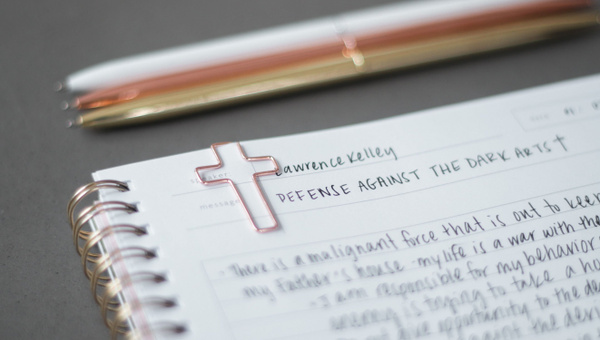 Lawrence Kelley
message
DEFENSE AGAINST THE DARK ARTS †
- There is a malignant force that is out to keep
my Father's house. my life is a war with the
- I am responsible for my behavior
enemy is trying to take a ho
give opportunity to the de
against the devi